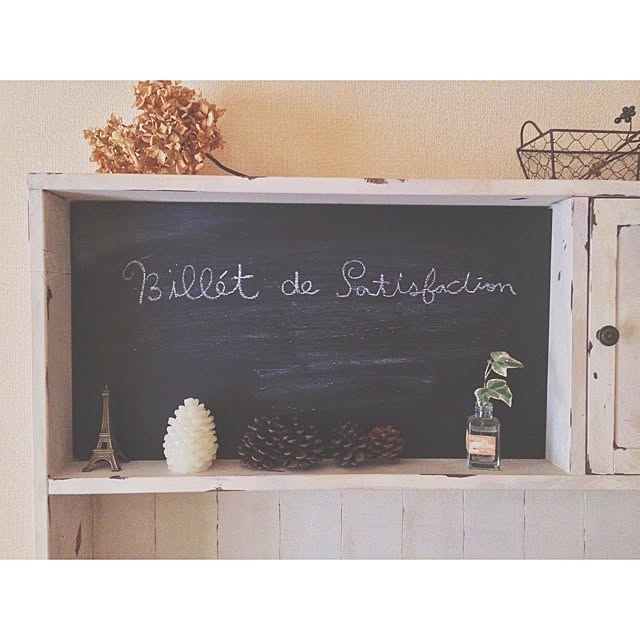 Billét de Satisfaction